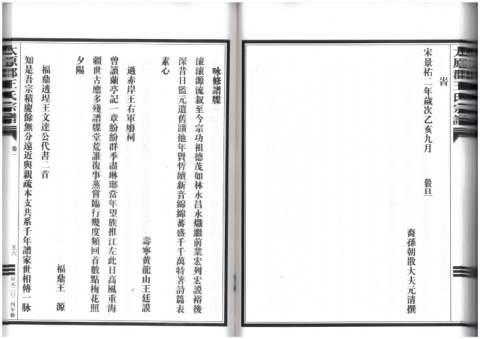 太原郡王氏宗譜
旹
宋景祐二年歲次乙亥九月　穀旦
裔孫朝散大夫元清撰
詠修譜牒
滾滾源流叙至今宗功祖德茂如林永昌永熾繼前業宏列宏謨裕後
深昔日監元遺舊蹟他年賢哲續新音綿綿蕃盛千千萬特著詩篇表
素心
壽寧黃龍山王廷謨
過赤岸王右軍廢祠
曾讀蘭亭記一章紛紛群季盡琳瑯當年望族推江左此日高風重海
疆世古應多殘譜牒堂荒誰復事蒸嘗臨行幾度頻回首數點梅花照
夕陽
福鼎王　源
福鼎透埕王文達公代書二首
知是吾宗積慶餘無分遠近與親疏本支共系千年譜家世相傳一脉
太原郡王氏宗譜
卷一
五六